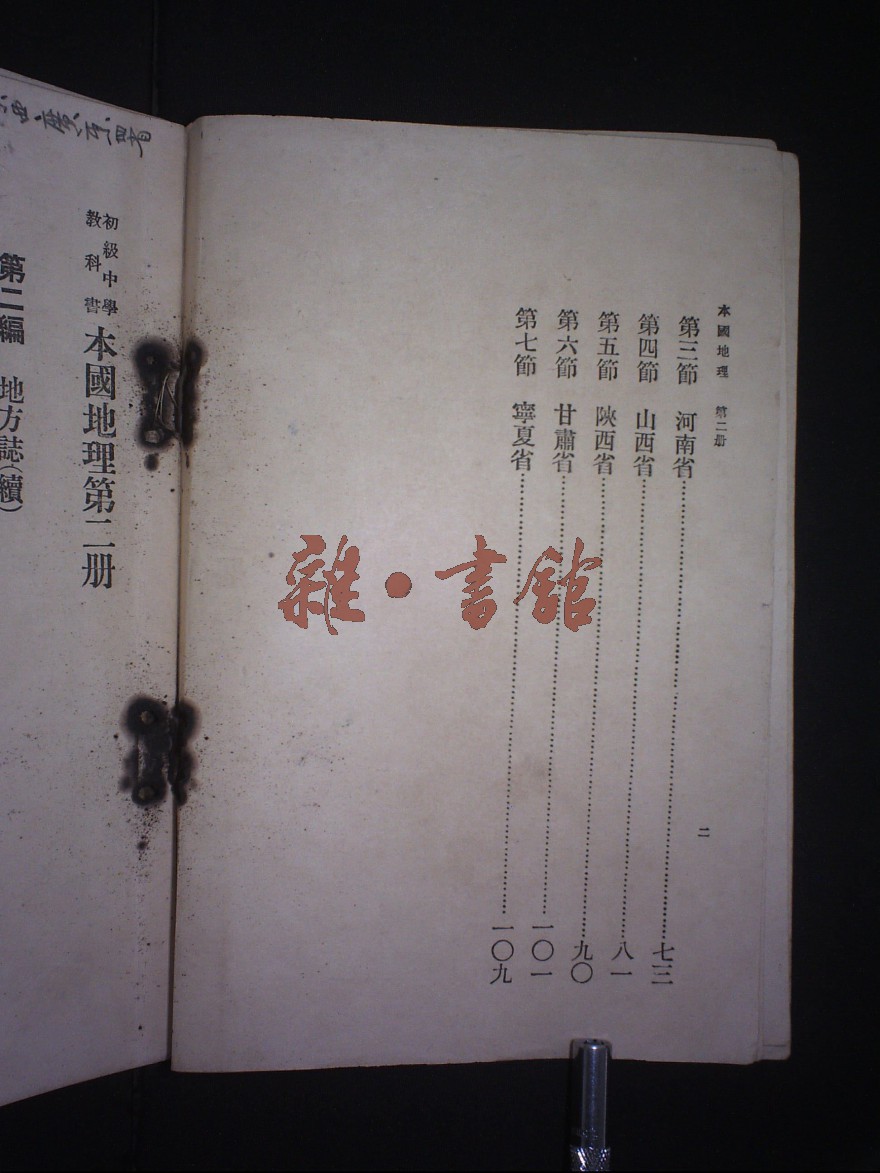 本國地理 第二册
二
第三節 河南省……七三
第四節 山西省……八一
第五節 陝西省……九〇
第六節 甘肅省……一〇一
第七節 寧夏省……一〇九
初級中學
教科書
本國地理第二册
第二編 地方誌(續)
雜·書館